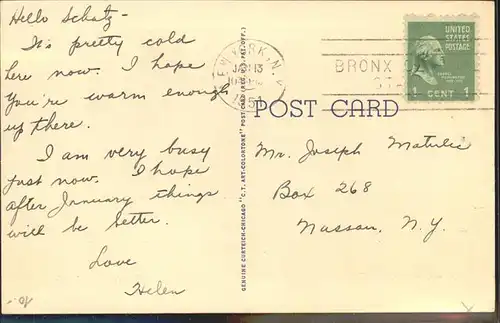 Hello Schatz -
It's pretty cold
here now. I hope
You're warm enough
up there.
I am very busy
just now. I hope
after January things
will be better.
Love
Helen
GENUINE CURTEICH-CHICAGO "C.T. ART-COLORTONE" POST CARD (REG. U.S. PAT. OFF.)
NEW YORK, N.Y.
13
BRONX
UNITED
STATES
POSTAGE
1 CENT 1
POST CARD
Mr. Joseph Matulic
Box 268
Nassau, N.Y.